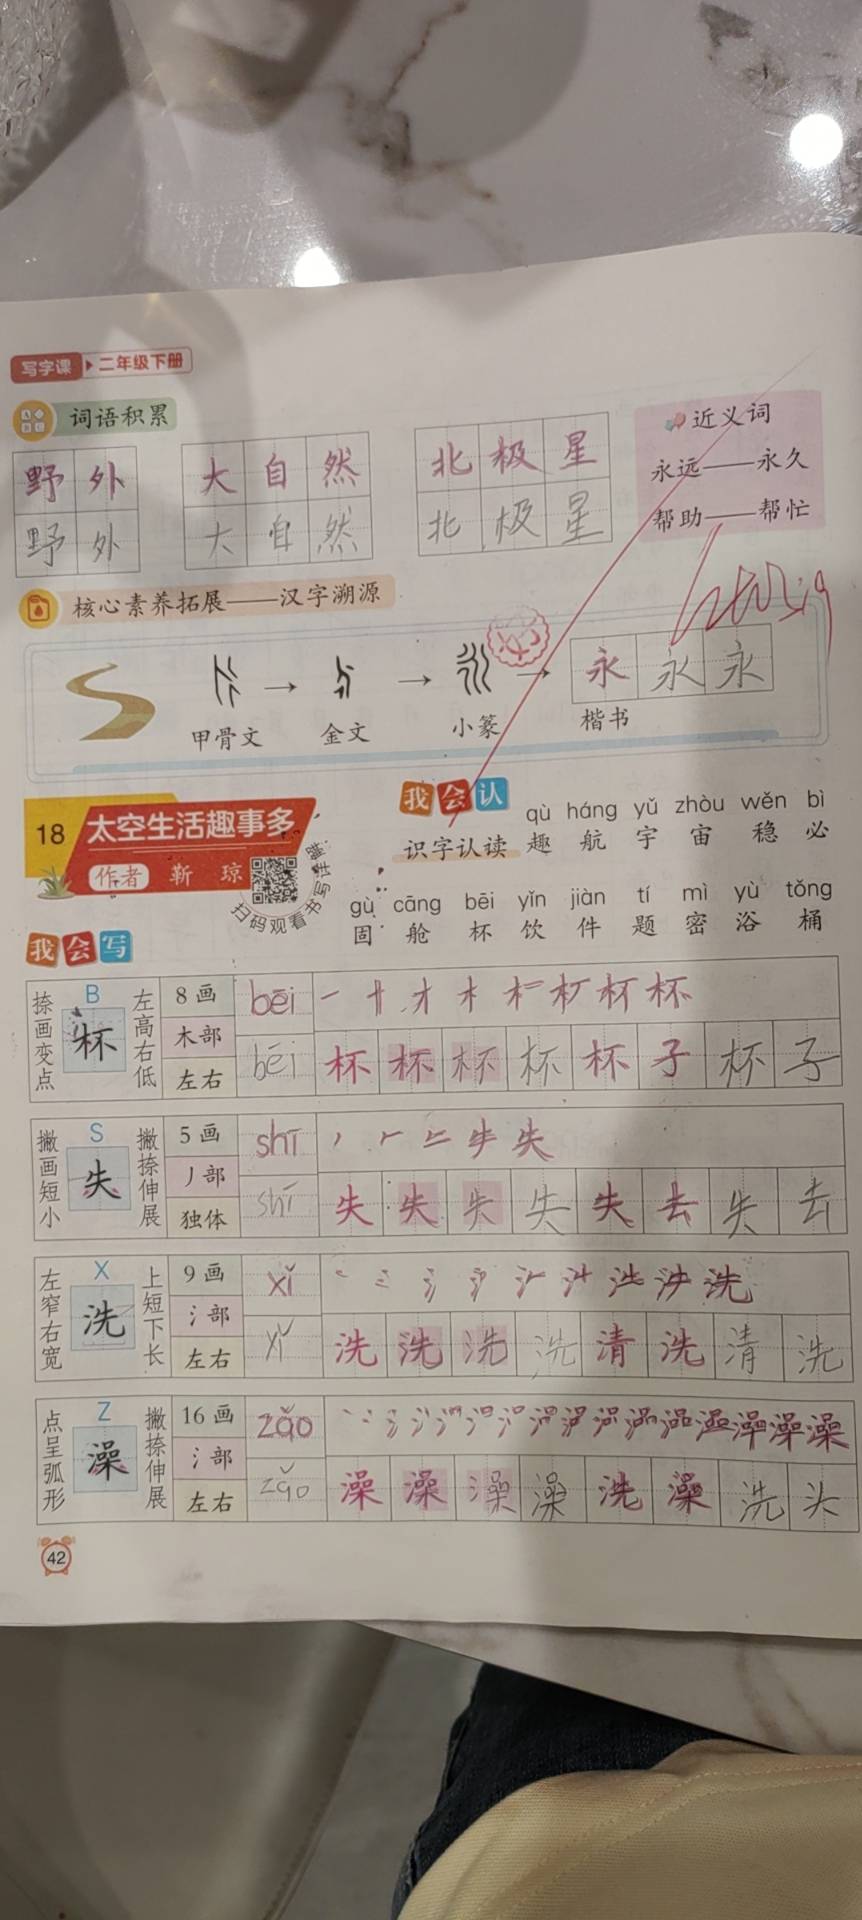 写字课 二年级下册
词语积累
野外 大自然 北极星
野外 大自然 北极星
近义词
永远——永久
帮助——帮忙
核心素养拓展——汉字溯源
永 永 永
甲骨文 金文 小篆 楷书
18 太空生活趣事多
作者 靳琼
扫码观看书写详解
我会认
识字认读
qù háng yǔ zhòu wěn bì
趣 航 宇 宙 稳 必
gù cāng bēi yǐn jiàn tí mì yù tǒng
固 舱 杯 饮 件 题 密 浴 桶
我会写
捺画变点
B
杯
左高右低
8画
木部
左右
bēi
bēi
一 十 才 木 杯
杯 杯 杯 杯 杯 子 杯 子
撇画短小
S
失
撇捺伸展
5画
丿部
独体
shī
shī
失
失 失 失 失 失 去 失 去
左窄右宽
X
洗
上短下长
9画
氵部
左右
xǐ
xǐ
洗
洗 洗 洗 洗 清 洗 清 洗
点呈弧形
Z
澡
撇捺伸展
16画
氵部
左右
zǎo
zǎo
澡
澡 澡 澡 澡 洗 澡 洗 头
42